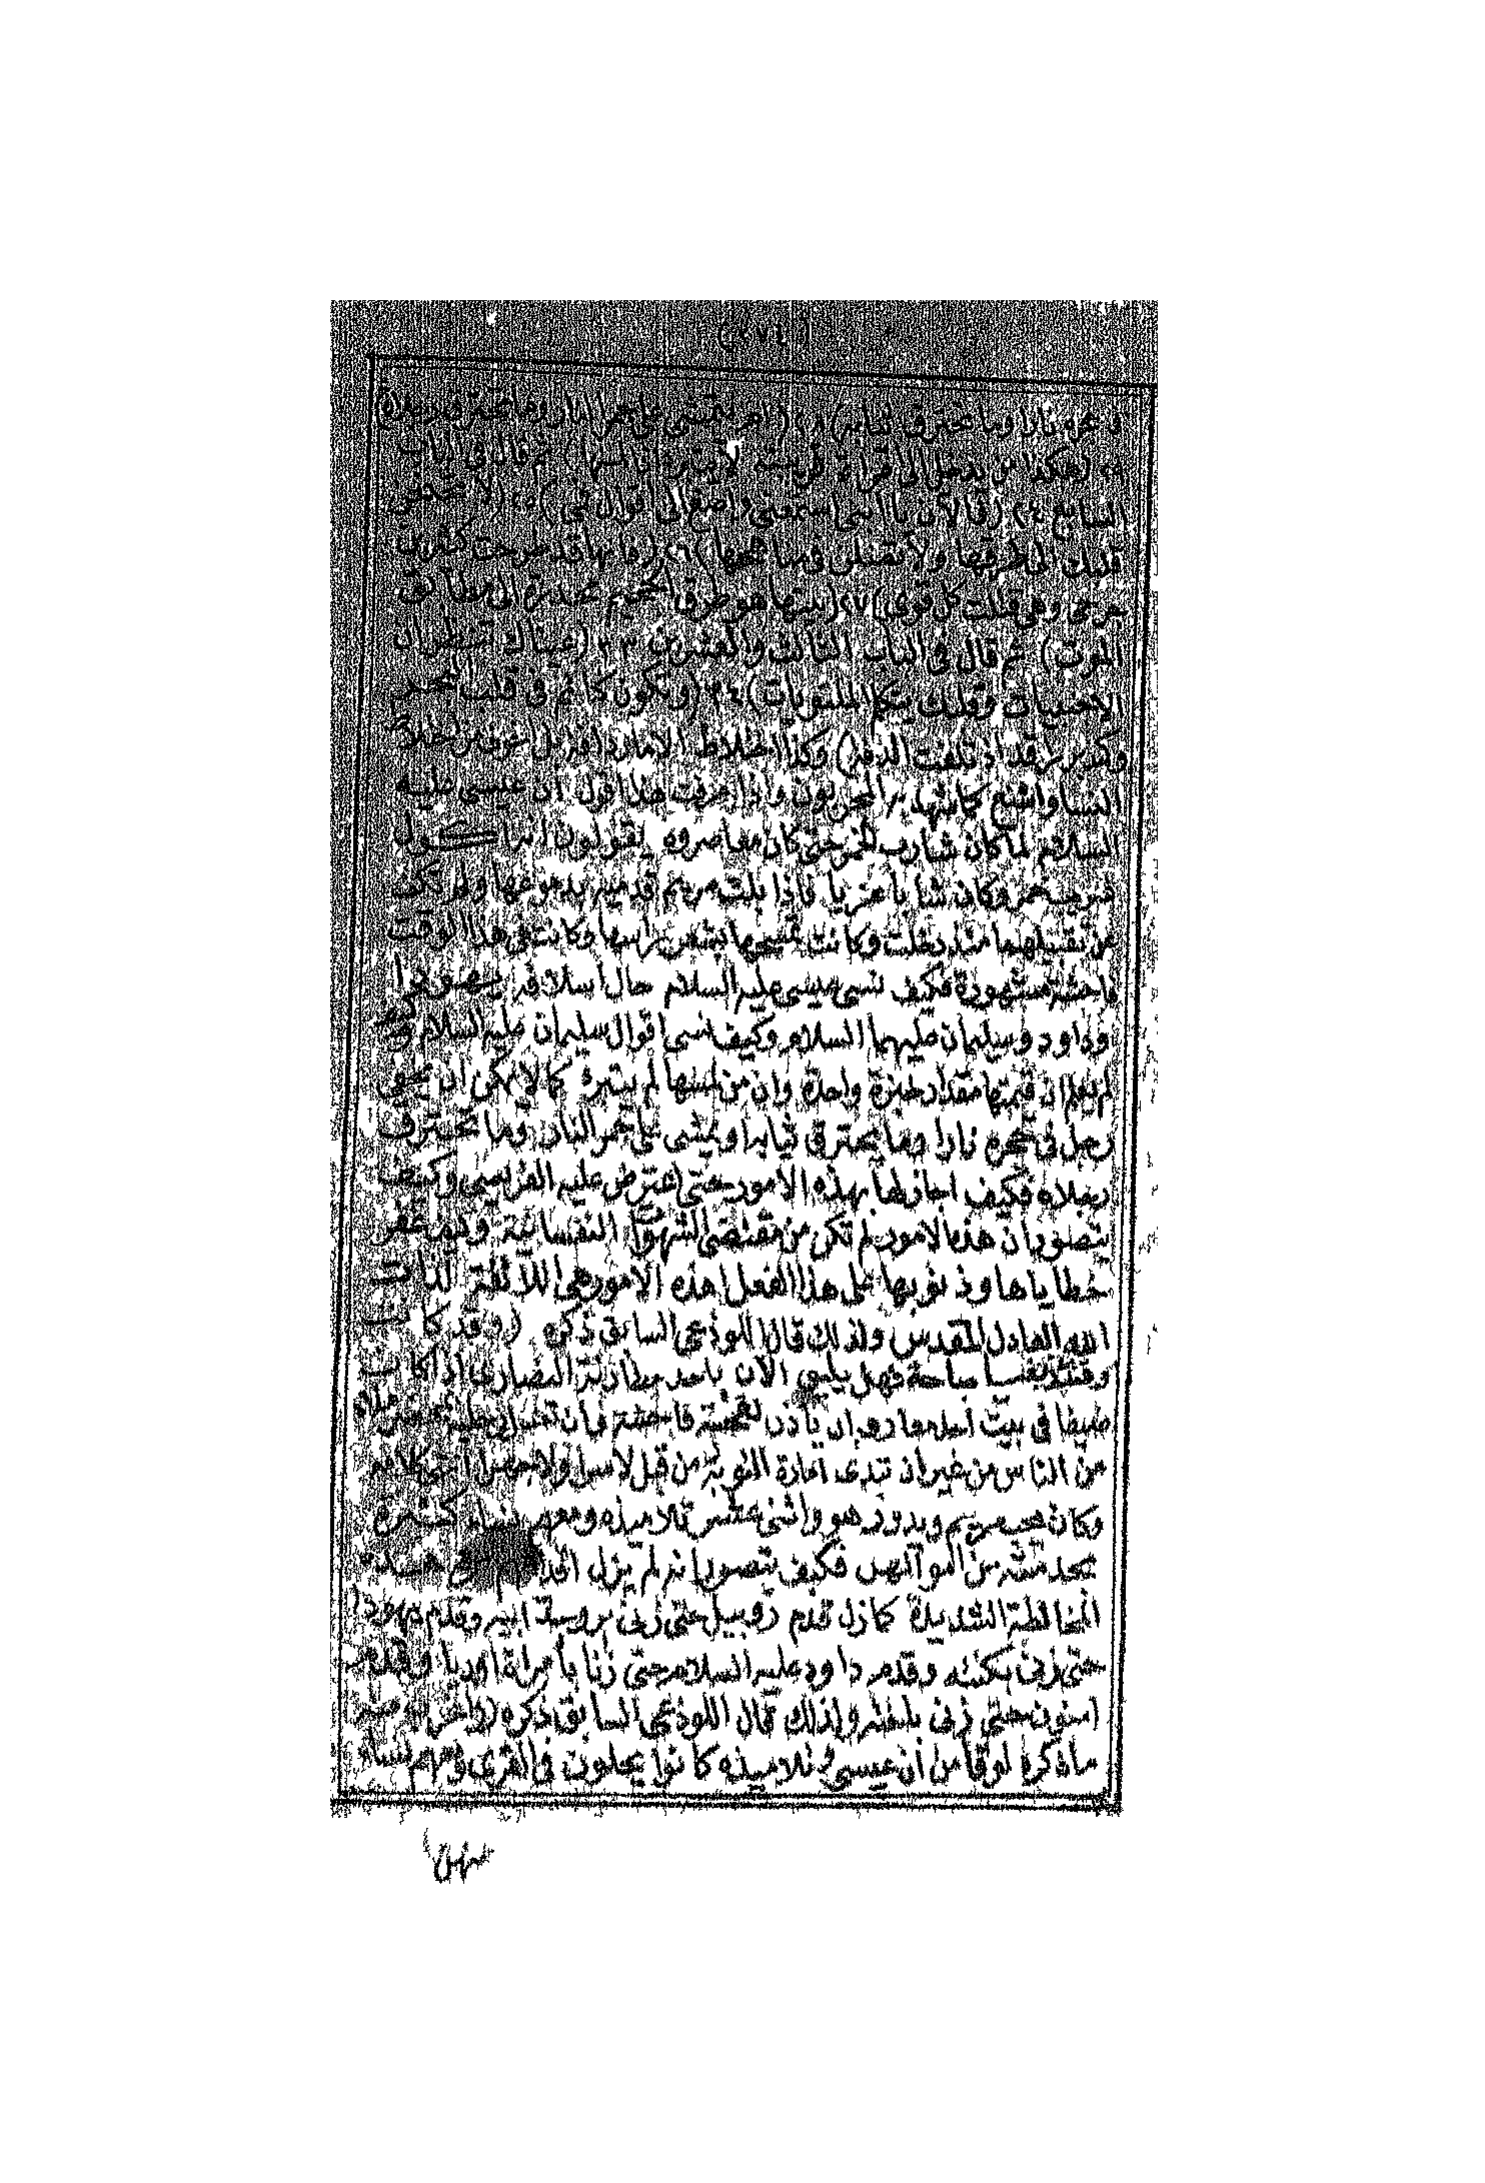 (٢٧٤)
في حجره نارا وما تحترق ثيابه) ٢٨ (او يتمشى على جمر النار وما تحترق رجلاه)
٢٩ (هكذا من يدخل الى امرأة قريبه لا يتبرء اذا لمسها) ثم قال في الباب
السابع ٢٤ (فالآن يا ابني اسمعني واصغ الى اقوال فمي) ٢٥ (لا تجذبن
قلبك الى طرقها ولا تضلن في مناهجها) ٢٦ (فانها قد طرحت كثيرين
جرحى وهى قتلت كل قوى) ٢٧ (بيتها هو طرق الجحيم تحدرة الى مطابق
الموت) ثم قال في الباب الثالث والعشرين ٣٣ (عيناك تنظران
الاجنبيات وقلبك يتكلم بالملتويات) ٣٤ (وتكون كنائم في قلب البحر
وكمدبر راقد اذ تلفت الدفة) وكذا اختلاط الامارد افة بل اخوف من اختلاط
النسا واشنع كما شهد به المجربون واذا عرفت هذا اقول ان عيسى عليه
السلام لما كان شارب الخمر حتى كان معاصروه يقولون انه اكول
شريب خمر وكان شابا عزبا فاذا بلت مريم قدميه بدموعها ولم تكف
من تقبيلهما منذ دخلت وكانت تمسحهما بشعر راسها وكانت في هذا الوقت
فاحشة مشهورة فكيف نسى عيسى عليه السلام حال اسلافه يهودا
وداود وسليمان عليهما السلام وكيف نسى اقوال سليمان عليه السلام وكيف
لم يعلم ان قيمتها مقدار خبزة واحدة وان من لمسها لم يتبرء كما لا يمكن ان يخفى
رجل في حجره نارا وما يحترق ثيابه او يمشى على جمر النار وما تحترق
رجلاه فكيف اجاز لها بهذه الامور حتى اعترض عليه الفريسي وكيف
يتصور ان هذه الامور لم تكن من مقتضى الشهوات النفسانية وكيف غفر
خطاياها وذنوبها على هذا الفعل اهذه الامور هى اللائقة لذات
الله العادل المقدس ولذلك قال اللوذعى السابق ذكره (وقد كانت
وقتئذ بغيا مباحة فهل يليق الآن باحد مطارنة النصارى اذا كان
ضيفا في بيت احد معارفه ان يأذن لقحبة فاحشة وان تغسل رجليه
من الناس من غير ان تبدى امارة التوبة من قبل لاسرا ولا جهرا انتهى كلامه
وكان يحب مريم ويدور هو واثنى عشر تلاميذه ومعهم نساء كثيرة
يخدمنه من اموالهن فكيف يتصور انه لم يزل مع هذه
المخالطة الشديدة كما زل قدم روبيل حتى زنى بزوجة ابيه وقدم يهودا
حتى زنى بكنته وقدم داود عليه السلام حتى زنا بامرأة اوريا وقدم
امنون حتى زنى باخته ولذلك قال اللوذعى السابق ذكره
ما ذكره لوقا من ان عيسى وتلاميذه كانوا يجولون في القرى ومعهم نساء